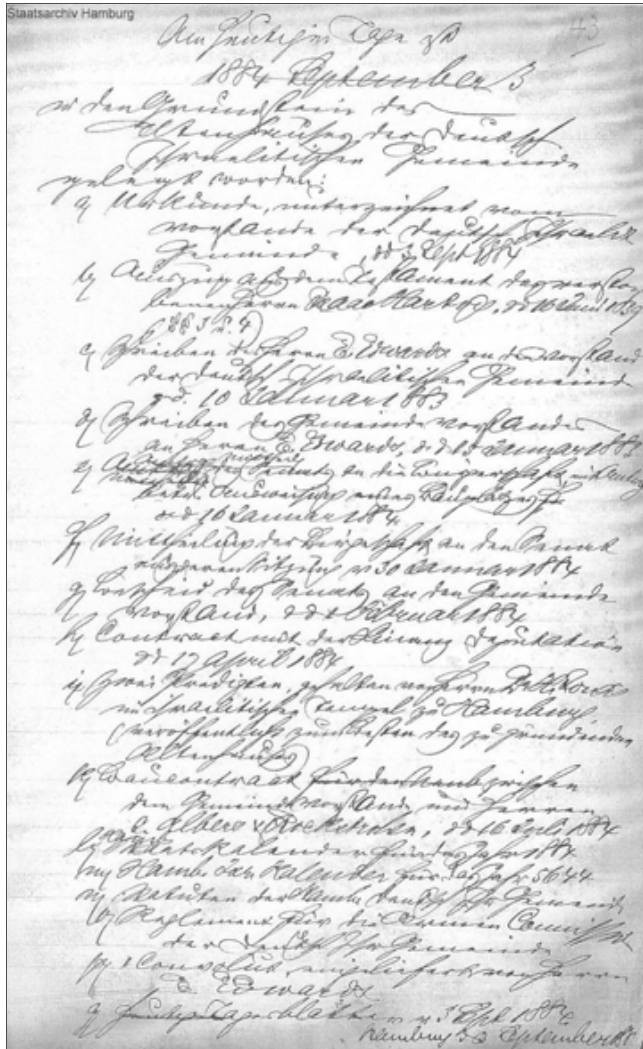 Staatsarchiv Hamburg
43
Am heutigen Tage
1884 September 3
in den Grundstein des
Altenhauses der Deutsch
Israelitischen Gemeinde
gelegt worden:
a) Urkunde, unterzeichnet vom
Vorstande der Deutsch Israelit
Gemeinde, dd 3 Sept 1884
b) Auszug aus dem Testament des verstor
benen Herrn Isaac Hartvig, dd 16 Juni 1839
(§§ 3 u. 4)
c) Schreiben des Herrn E. Edwards an den Vorstand
der Deutsch Israelitischen Gemeinde
dd. 10 Januar 1883
d) Schreiben des Gemeindevorstandes
an Herrn E. Edwards, dd 15 Januar 1883
e) des Senats an die Bürgerschaft, mit
betr. Ausweisung eines Bauplatzes
dd 16 Januar 1884
f) Mittheilung der Bürgerschaft an den Senat
aus deren Sitzung v 30 Januar 1884
g) Bescheid des Senats an den Gemeinde
vorstand, dd Februar 1884
h) Contract mit der Finanz Deputation
dd 17 April 1884
i) Zwei Predigten, gehalten von Herrn Dr
im israelitischen Tempel zu Hamburg
(veröffentlicht zum Besten des zu gründenden
Altenhauses)
k) Baucontract für den zwischen
dem Gemeindevorstande und Herren
Albers, dd 16 Juli 1884
l) Staatskalender für das Jahr 1884
m) Hamb Kalender für das Jahr 5644
n) Statuten der Hamb Deutsch Isr Gemeinde
o) Reglement für die Armen Commission
der Deutsch Isr Gemeinde
p) 1 Convolut, eingeliefert von Herrn
E Edwards
q) Tagesblätter v 3 Sept 1884
Hamburg 3 September